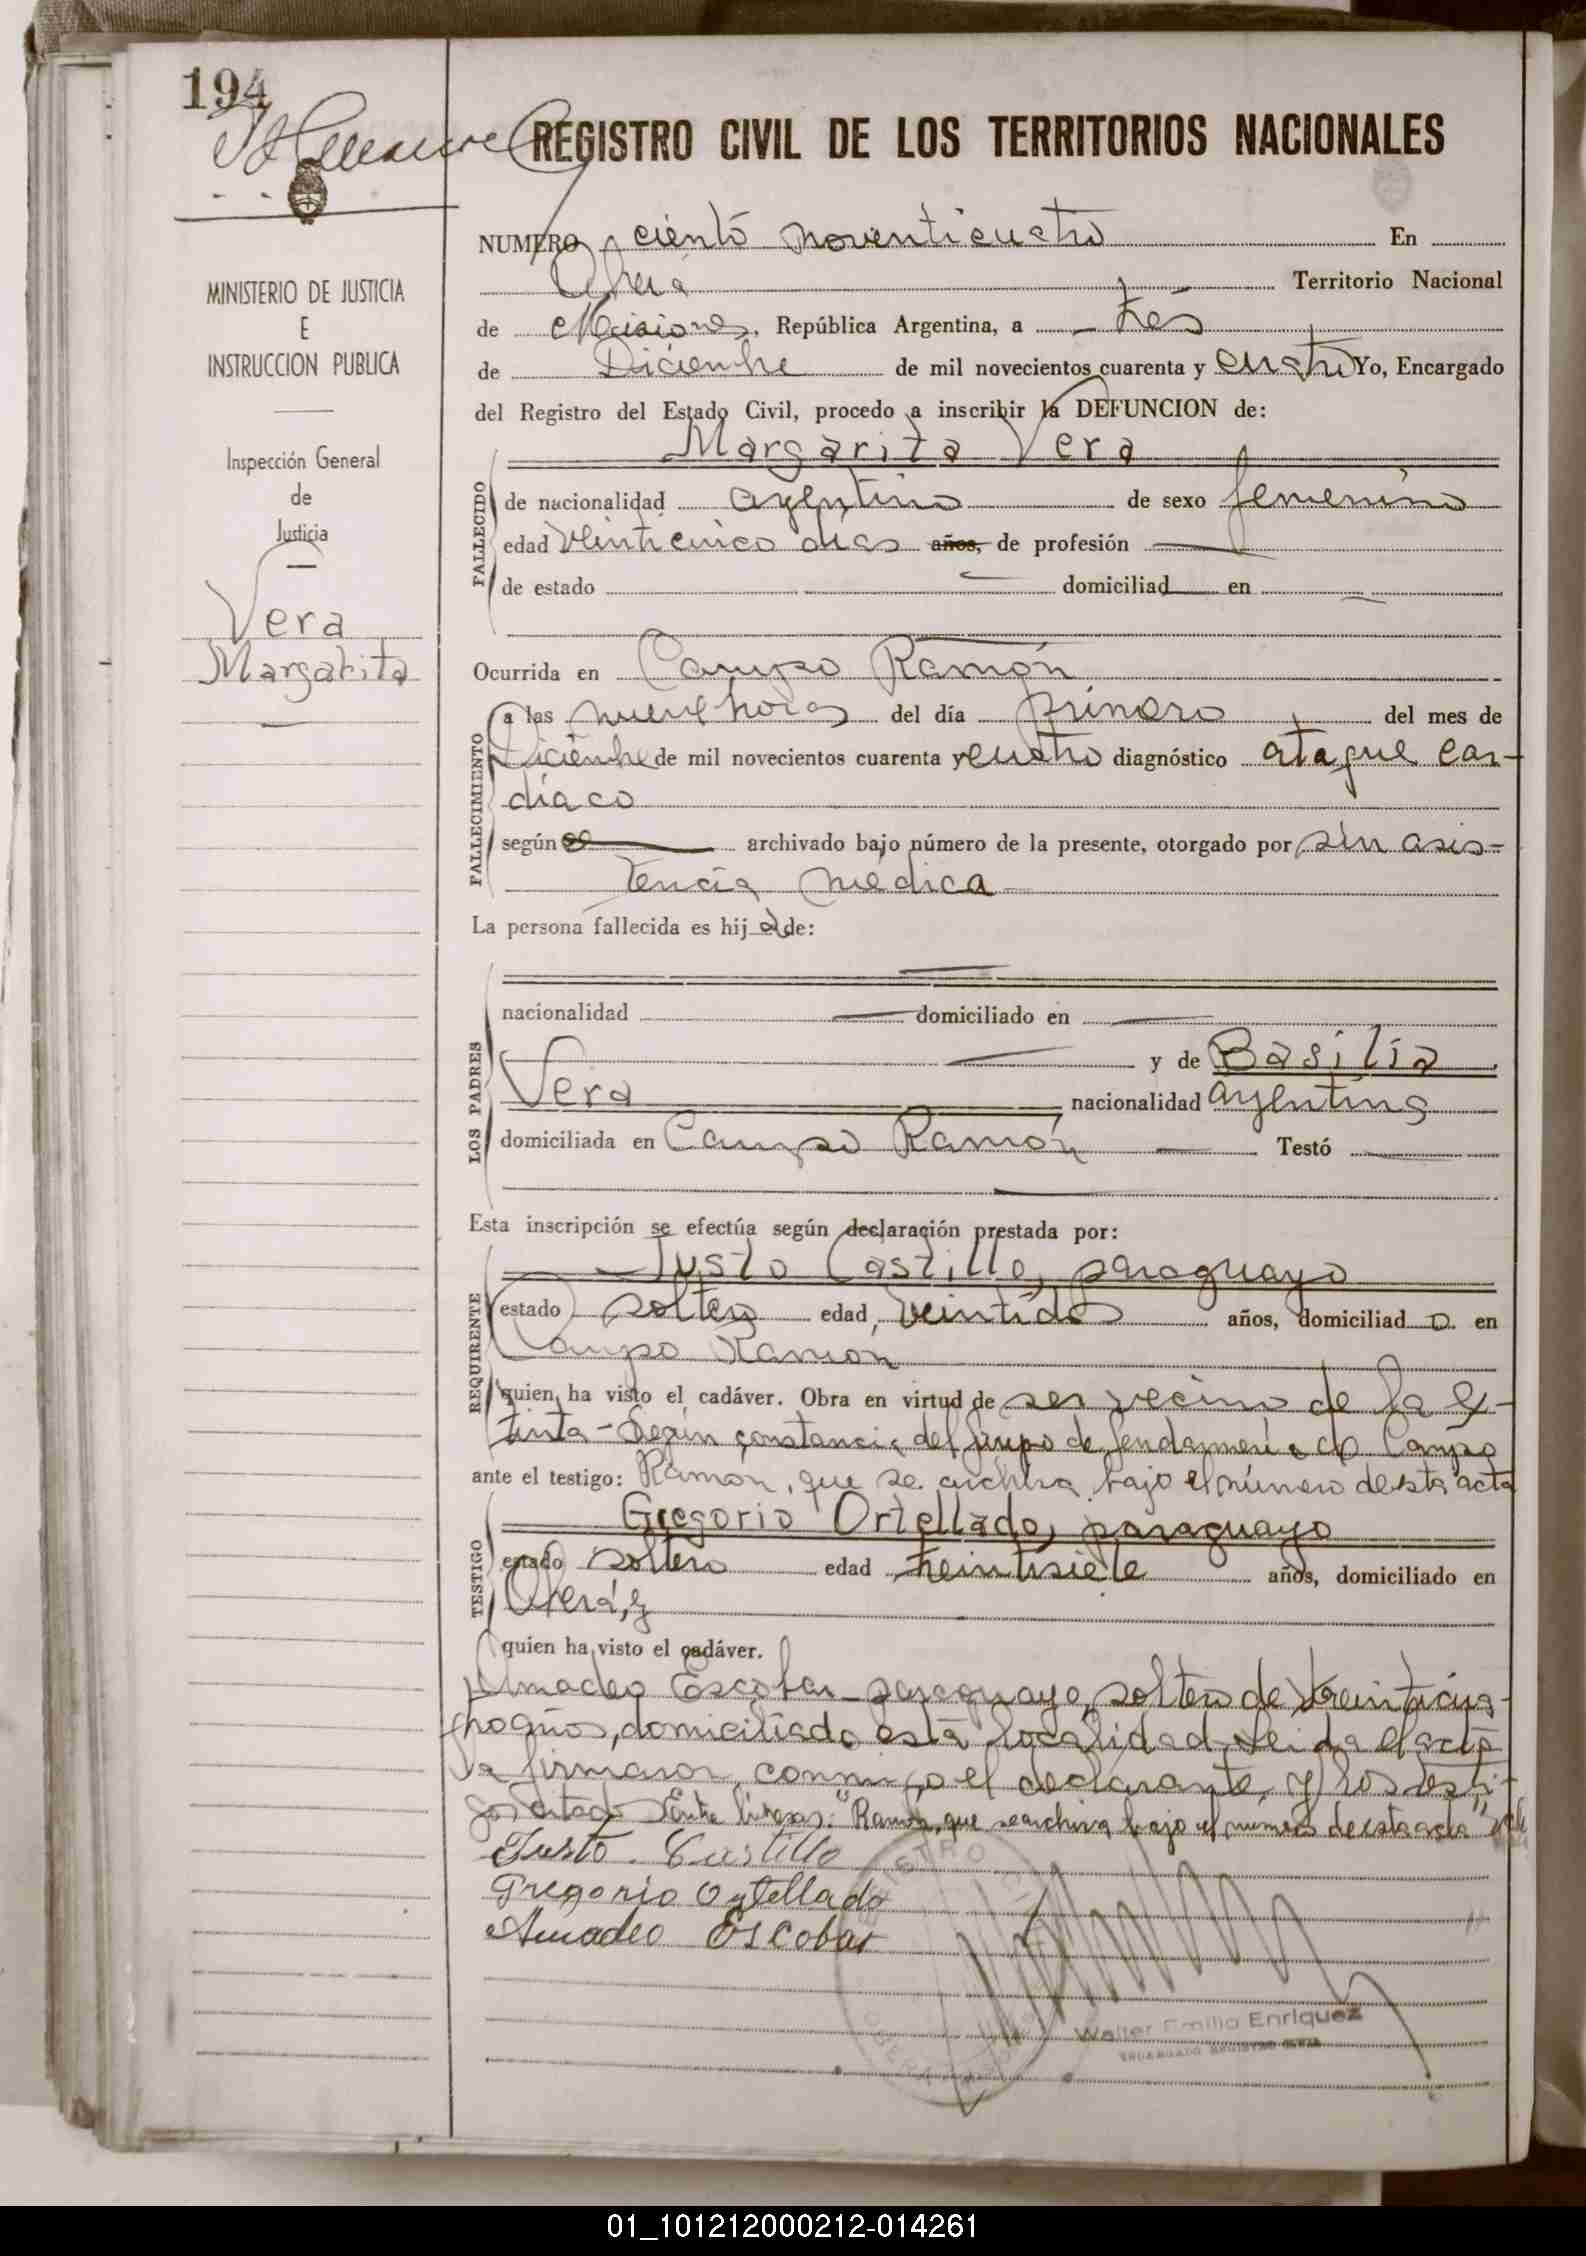 194
REGISTRO CIVIL DE LOS TERRITORIOS NACIONALES
MINISTERIO DE JUSTICIA
E
INSTRUCCION PUBLICA
Inspección General
de
Justicia
Vera
Margarita
NUMERO ciento noventicuatro En
Oberá Territorio Nacional
de Misiones, República Argentina, a tres
de Diciembre de mil novecientos cuarenta y cuatro Yo, Encargado
del Registro del Estado Civil, procedo a inscribir la DEFUNCION de:
Margarita Vera
FALLECIDO
de nacionalidad argentina de sexo femenino
edad veinticinco días años, de profesión
de estado domiciliad en
Ocurrida en Campo Ramón
FALLECIMIENTO
a las nueve horas del día primero del mes de
Diciembre de mil novecientos cuarenta y cuatro diagnóstico ataque car-
díaco
según archivado bajo número de la presente, otorgado por sin asis-
tencia médica
La persona fallecida es hija de:
LOS PADRES
nacionalidad domiciliado en
y de Basilia
Vera nacionalidad argentina
domiciliada en Campo Ramón Testó
Esta inscripción se efectúa según declaración prestada por:
REQUIRENTE
Justo Castillo, paraguayo
estado soltero edad, veintidos años, domiciliado en
Campo Ramón
quien ha visto el cadáver. Obra en virtud de ser vecino de la ex-
tinta - Según constancia del grupo de gendarmería de Campo
ante el testigo: Ramón, que se archiva bajo el número de esta acta
TESTIGO
Gregorio Ortellado, paraguayo
estado soltero edad treintisiete años, domiciliado en
Oberá, y
quien ha visto el cadáver.
Amadeo Escobar paraguayo, soltero de treinticua-
tro años, domiciliado esta localidad. Leida el acta
la firmaron conmigo el declarante y los testi-
gos citados Entre lineas: "Ramón, que se archiva bajo el número de esta acta" vale
Justo Castillo
Gregorio Ortellado
Amadeo Escobar
REGISTRO
OBERA
Walter Emilio Enriquez
ENCARGADO REGISTRO CIVIL
01_101212000212-014261